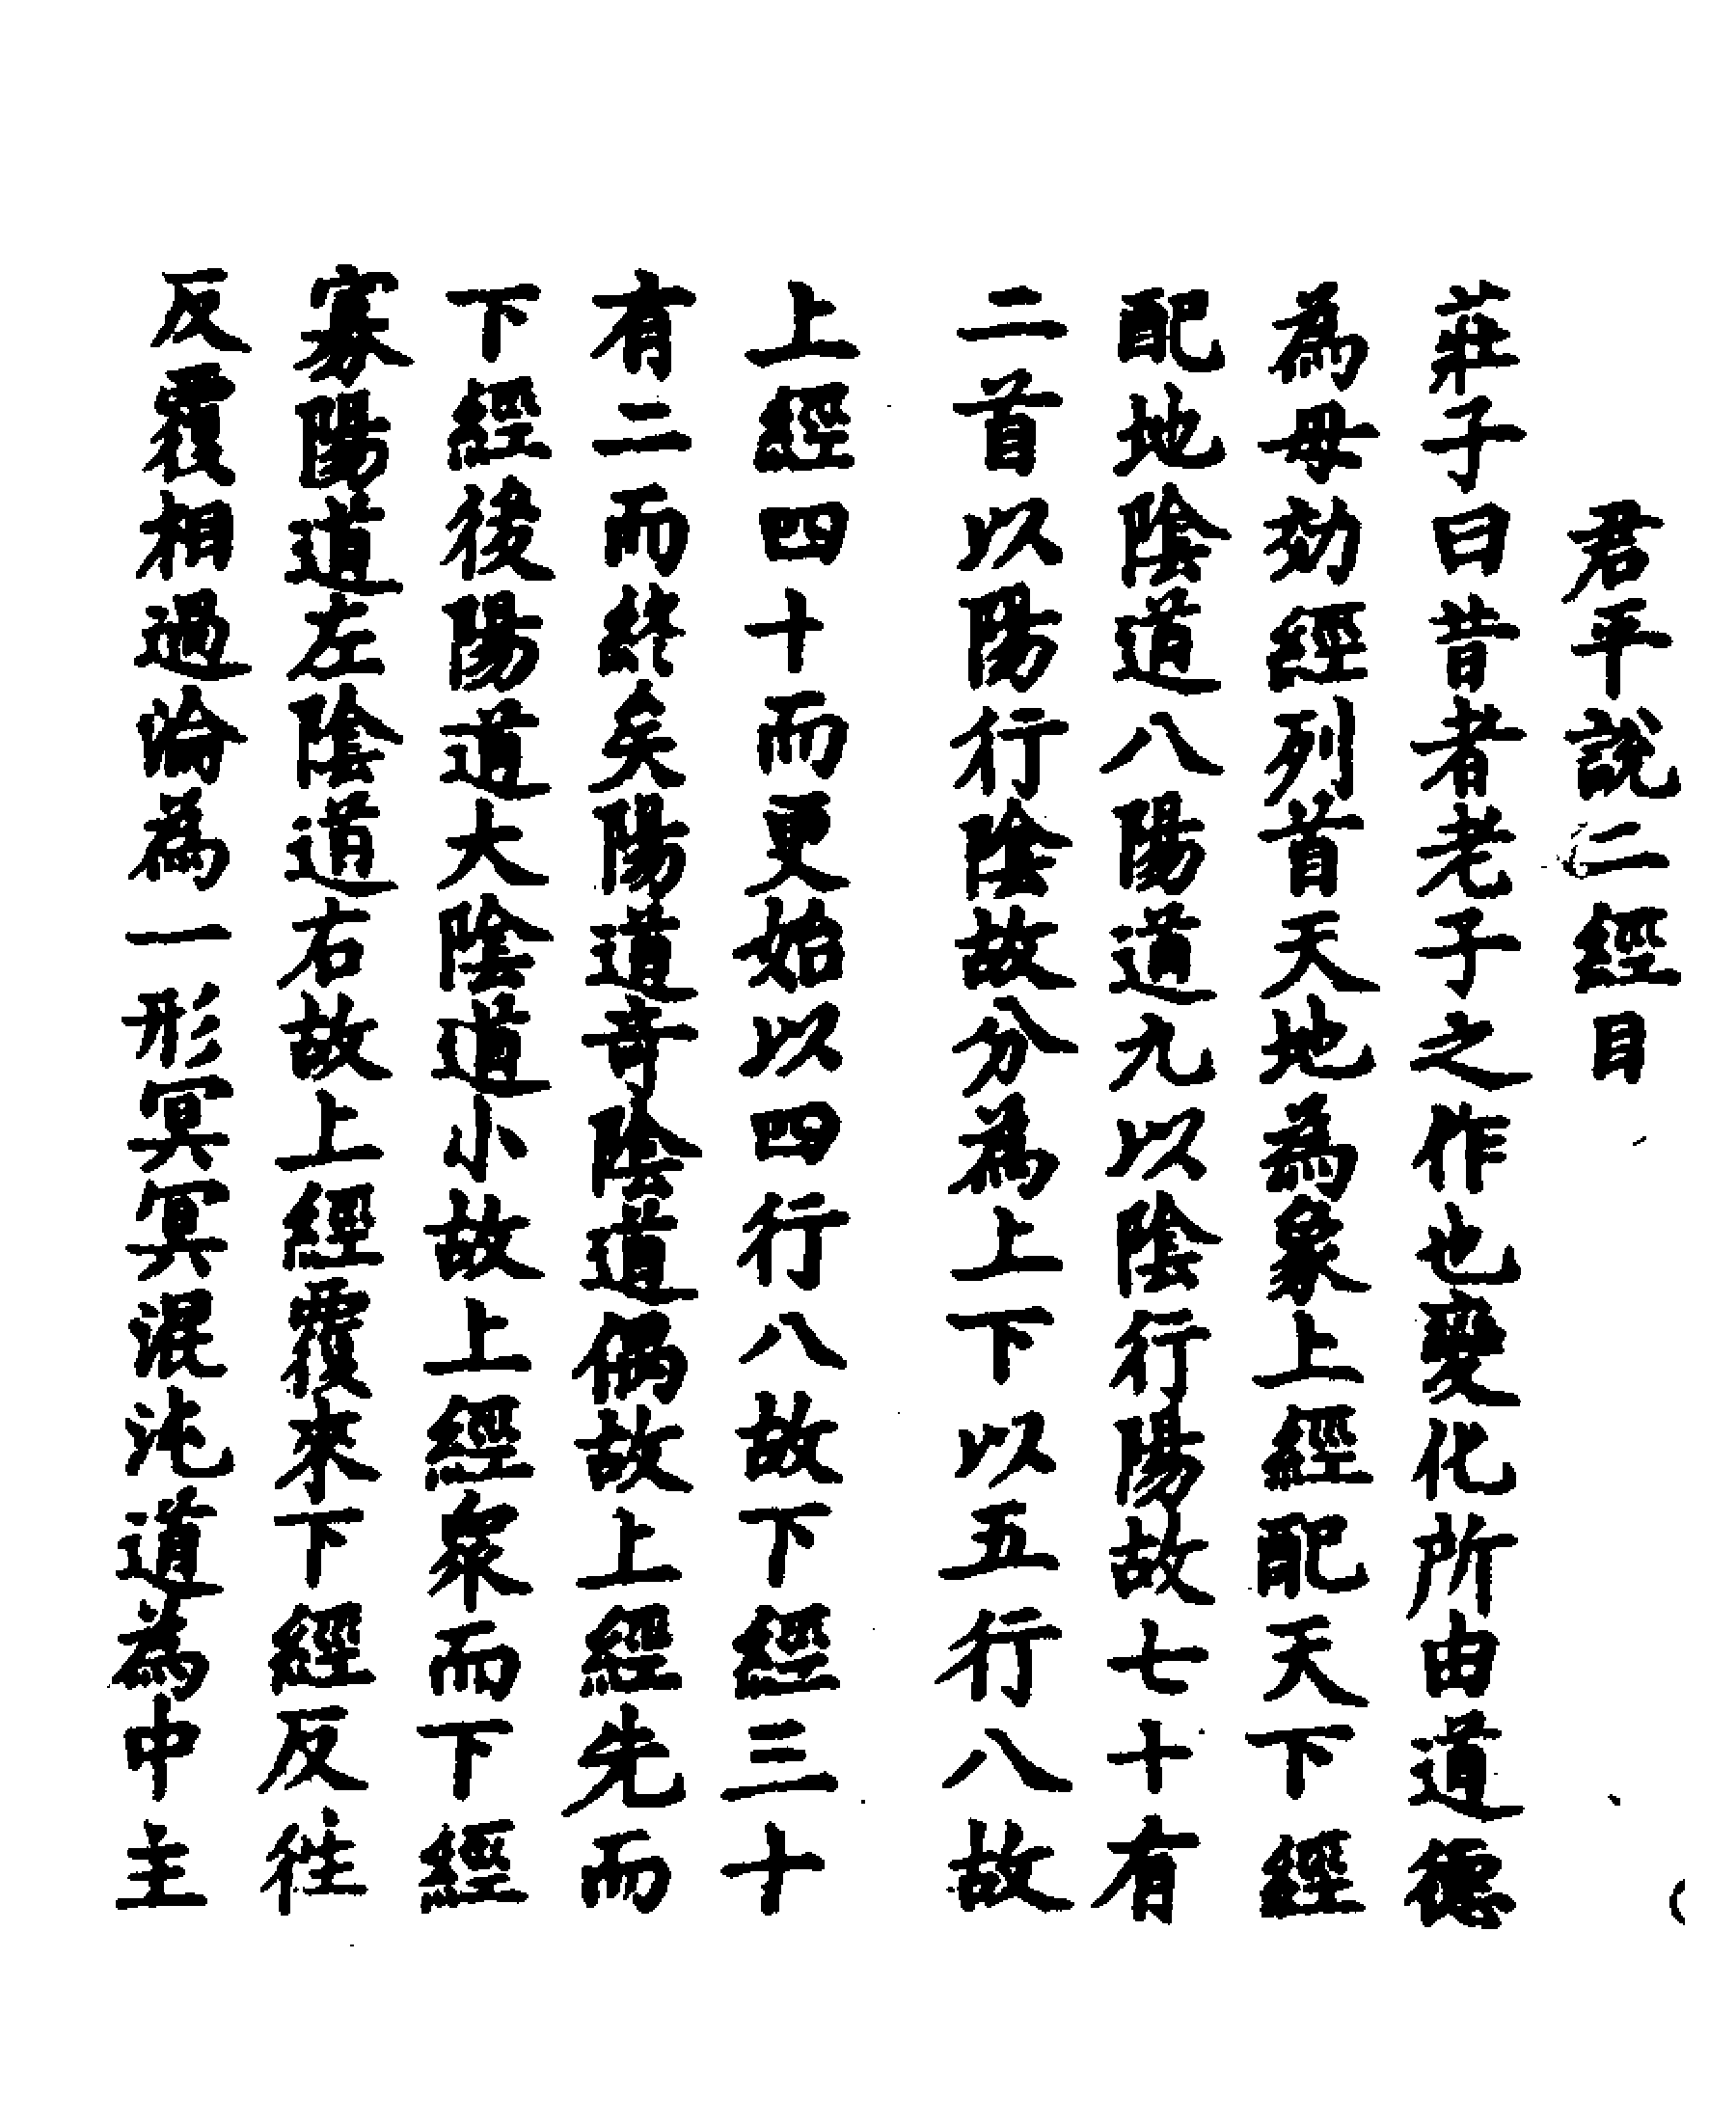 君平說二經目
莊子曰昔者老子之作也變化所由道德
為母効經列首天地為象上經配天下經
配地陰道八陽道九以陰行陽故七十有
二首以陽行陰故分為上下以五行八故
上經四十而更始以四行八故下經三十
有二而終矣陽道奇陰道偶故上經先而
下經後陽道大陰道小故上經衆而下經
寡陽道左陰道右故上經覆來下經反徃
反覆相過淪為一形冥冥混沌道為中主